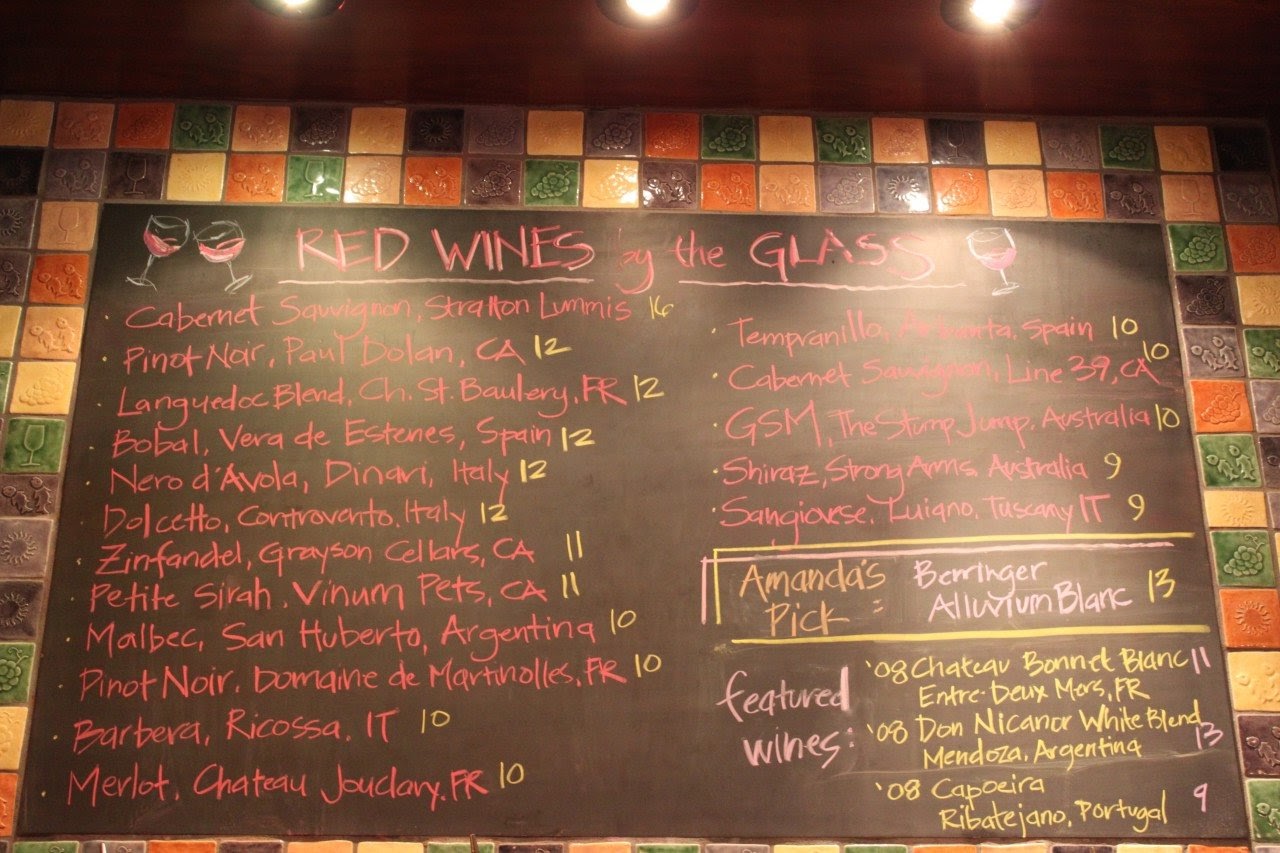 RED WINES by the GLASS
Cabernet Sauvignon, Stratton Lummis 16
Pinot Noir, Paul Dolan, CA 12
Languedoc Blend, Ch. St. Baulery, FR 12
Bobal, Vera de Estenes, Spain 12
Nero d'Avola, Dinari, Italy 12
Dolcetto, Controvento, Italy 12
Zinfandel, Grayson Cellars, CA 11
Petite Sirah, Vinum Pets, CA 11
Malbec, San Huberto, Argentina 10
Pinot Noir, Domaine de Martinolles, FR 10
Barbera, Ricossa, IT 10
Merlot, Chateau Jouclary, FR 10
Tempranillo, Spain 10
Cabernet Sauvignon, Line 39, CA 10
GSM, The Stump Jump, Australia 10
Shiraz, Strong Arms, Australia 9
Sangiovese, Luiano, Tuscany IT 9
Amanda's Pick: Berringer
Alluvium Blanc 13
featured wines:
'08 Chateau Bonnet Blanc 11
Entre-Deux Mers, FR
'08 Don Nicanor White Blend
Mendoza, Argentina 13
'08 Capoeira
Ribatejano, Portugal 9